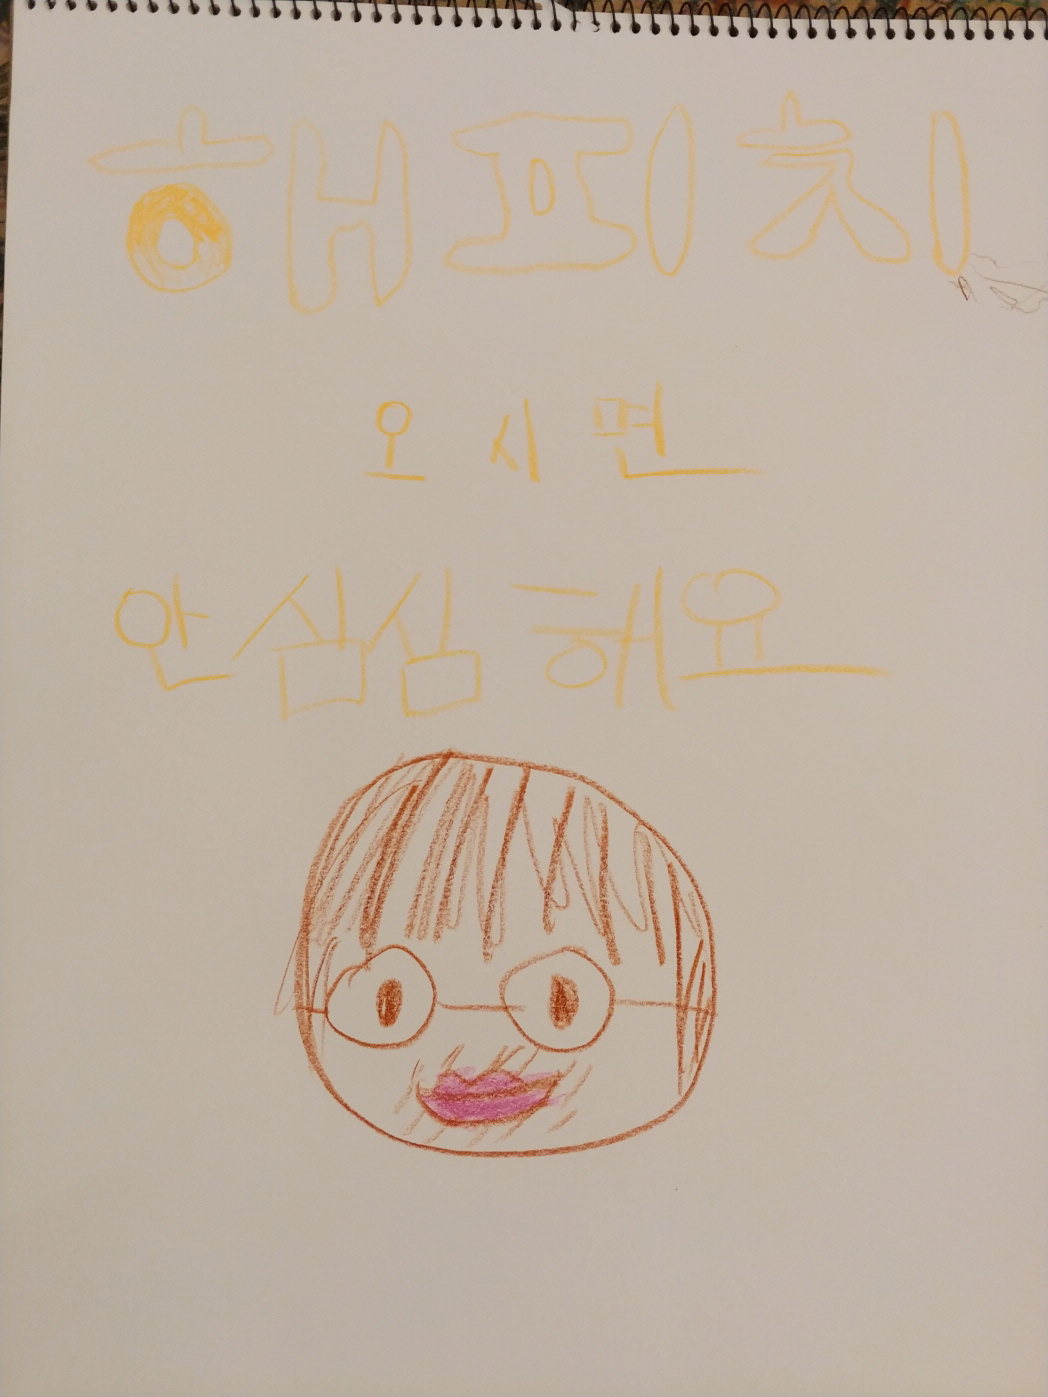 해피치
오시면
안심심해요